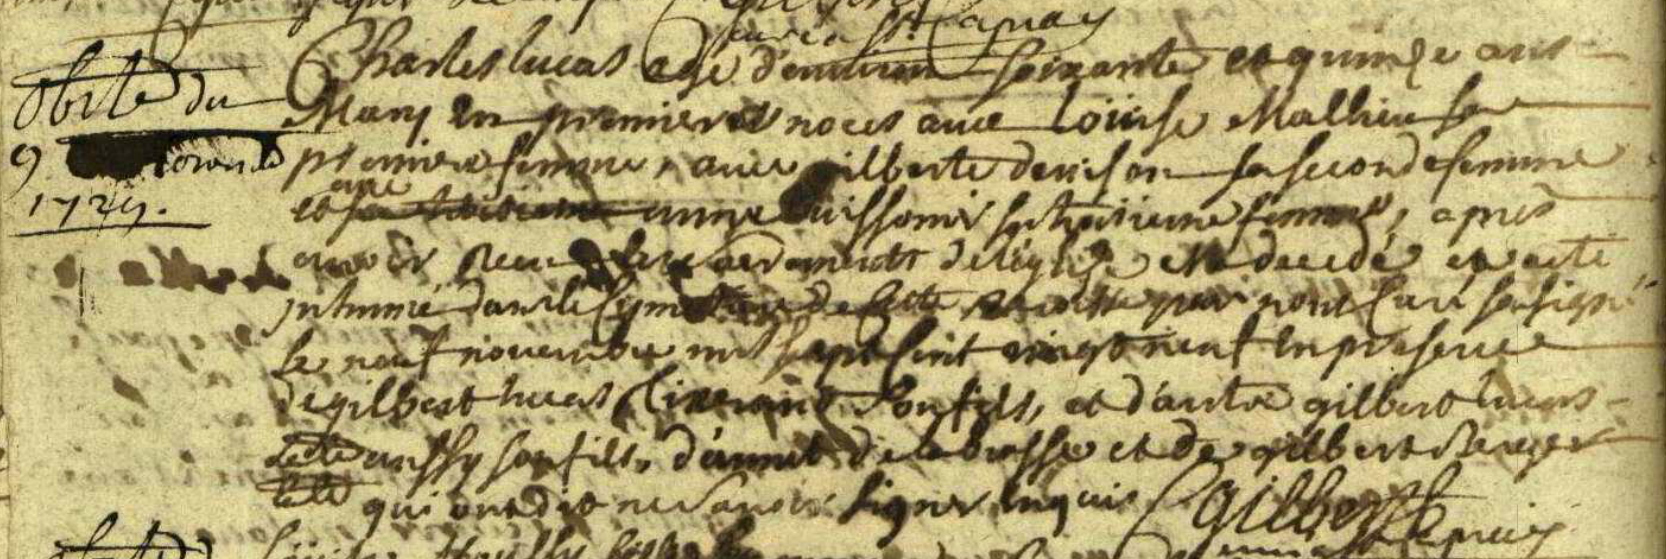 Obite du
9 novembre
1729.
Charles lucas agé d'environ soixante et quinze ans
Mary En premieres noces avec Loüise Mathieu sa
premiere femme, avec gilberte denison sa seconde femme
et avec anne buissonir sa troisieme femme, apres
avoir Receu les sacrements de l'église est decedé et a eté
jnhumé dans le Cymetiere de Cette paroisse par nous Curé soussigné
le neuf novembre mil sept Cent vingt neuf En presence
de gilbert lucas son fils, et d'autre gilbert lucas
aussy son fils, de la brosse et de gilbert
qui ont dit ne sçavoir signer Enquis
gilbert